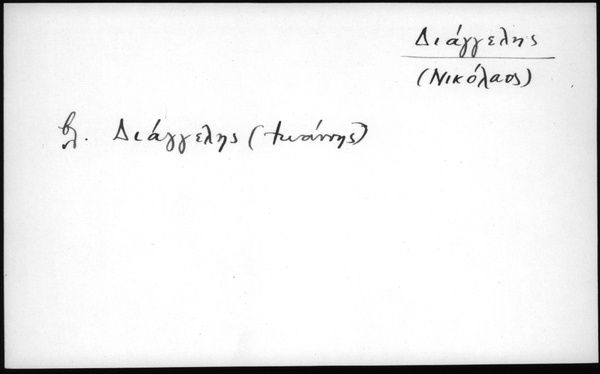 Διάγγελης
(Νικόλαος)
βλ. Διάγγελης (Ιωάννης)